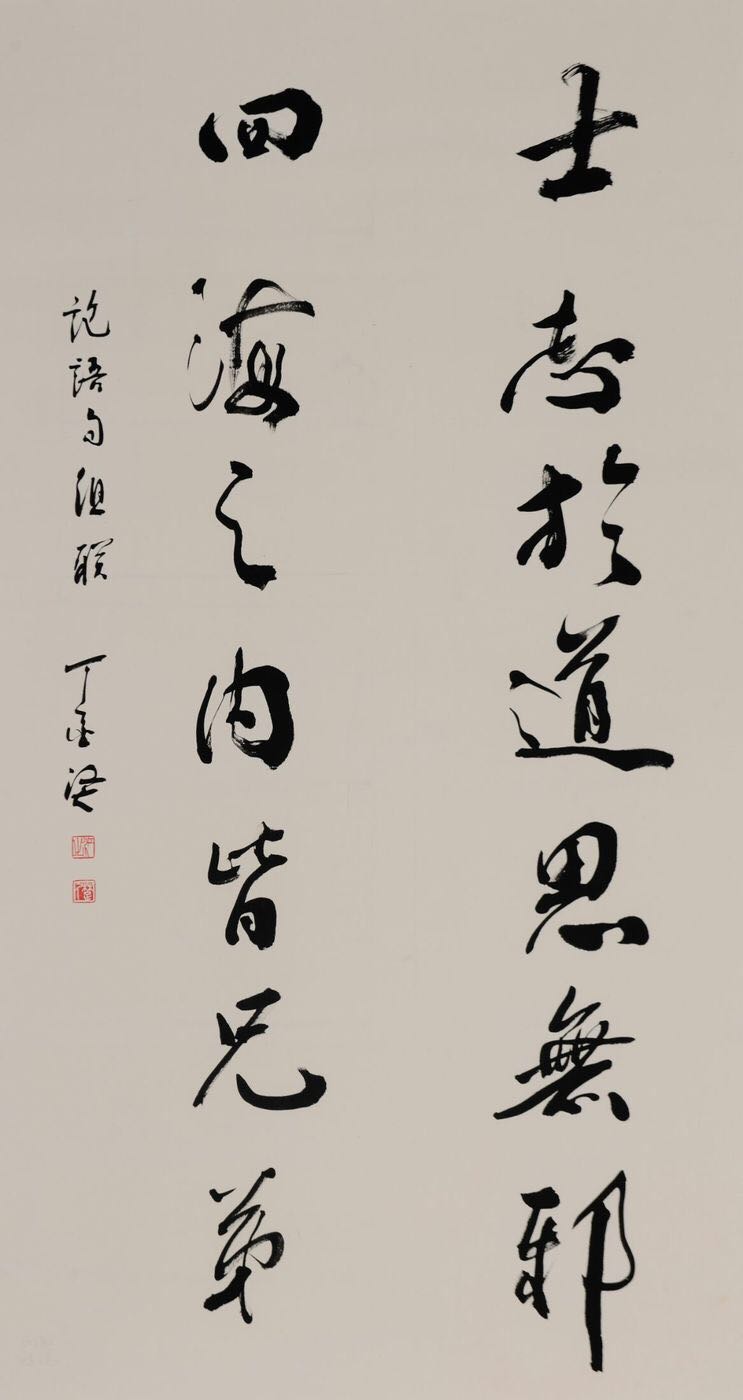 士志於道思無邪
四海之内皆兄弟
論語句组联 丁